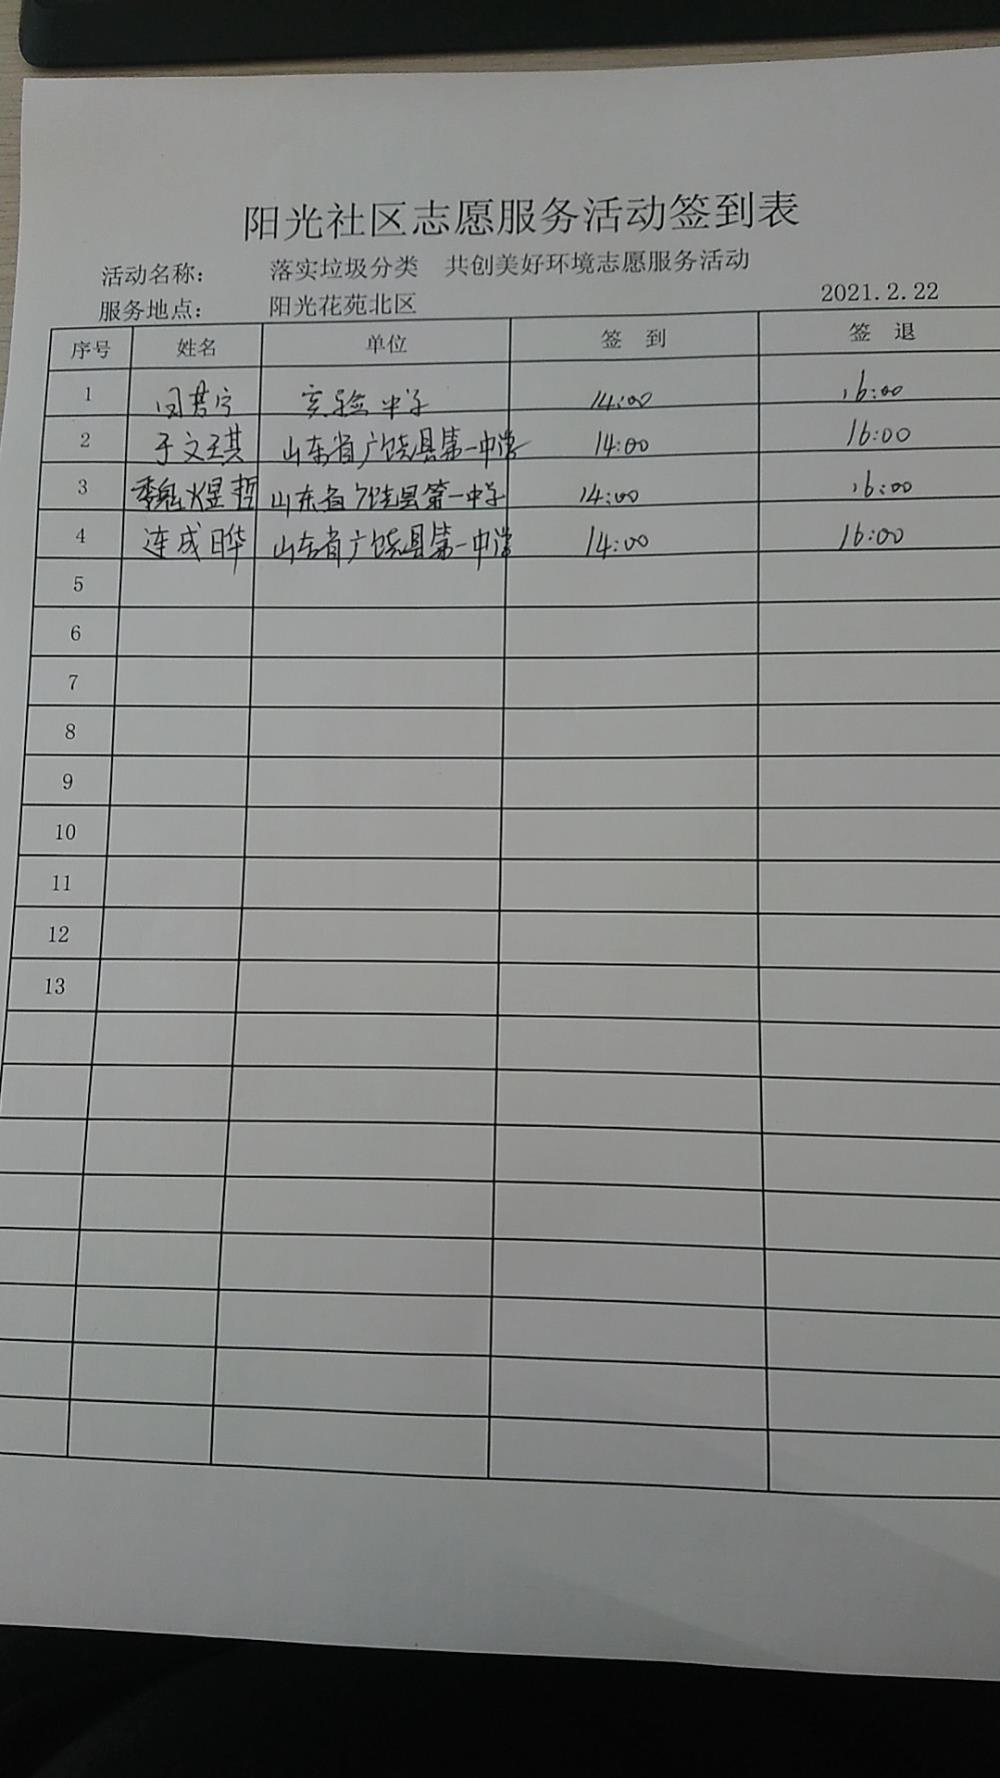 阳光社区志愿服务活动签到表
活动名称： 落实垃圾分类 共创美好环境志愿服务活动
服务地点： 阳光花苑北区 2021.2.22
序号 姓名 单位 签 到 签 退
1 实验中学 14:00 16:00
2 于文琪 山东省广饶县第一中学 14:00 16:00
3 魏煜哲 山东省广饶县第一中学 14:00 16:00
4 连成晔 山东省广饶县第一中学 14:00 16:00
5
6
7
8
9
10
11
12
13